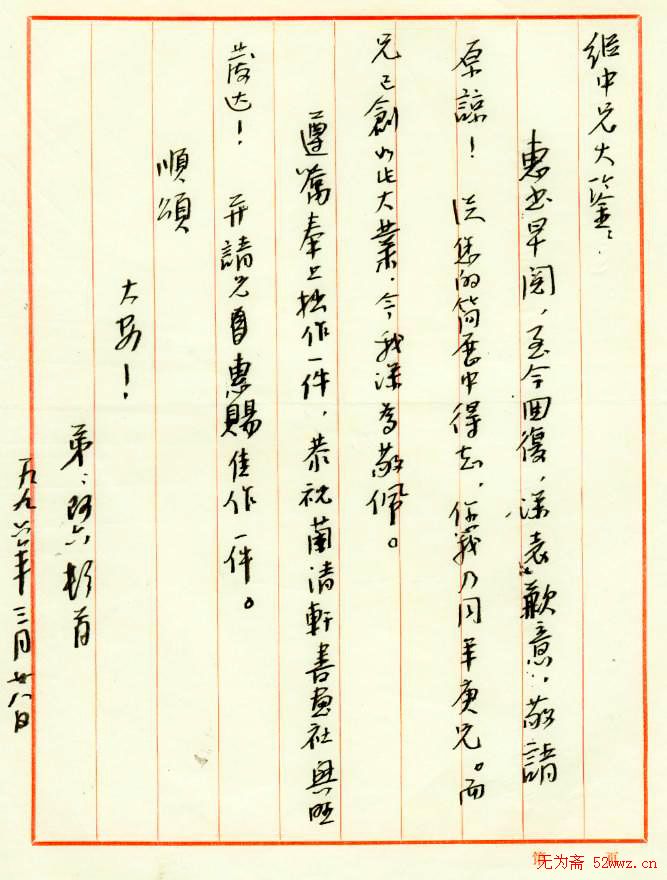 继中兄大鉴：
惠书早阅，至今回復，深表歉意，敬請
原諒！從您的简历中得知，你我乃同年庚兄。而
兄已創如此大業，令我深為敬佩。
遵嘱奉上拙作一件，恭祝蘭清軒書画社興旺
發达！并請兄惠賜佳作一件。
順頌
大安！
弟：阿六 顿首
一九九六年三月廿八日
第 页
无为斋 52wwz.cn